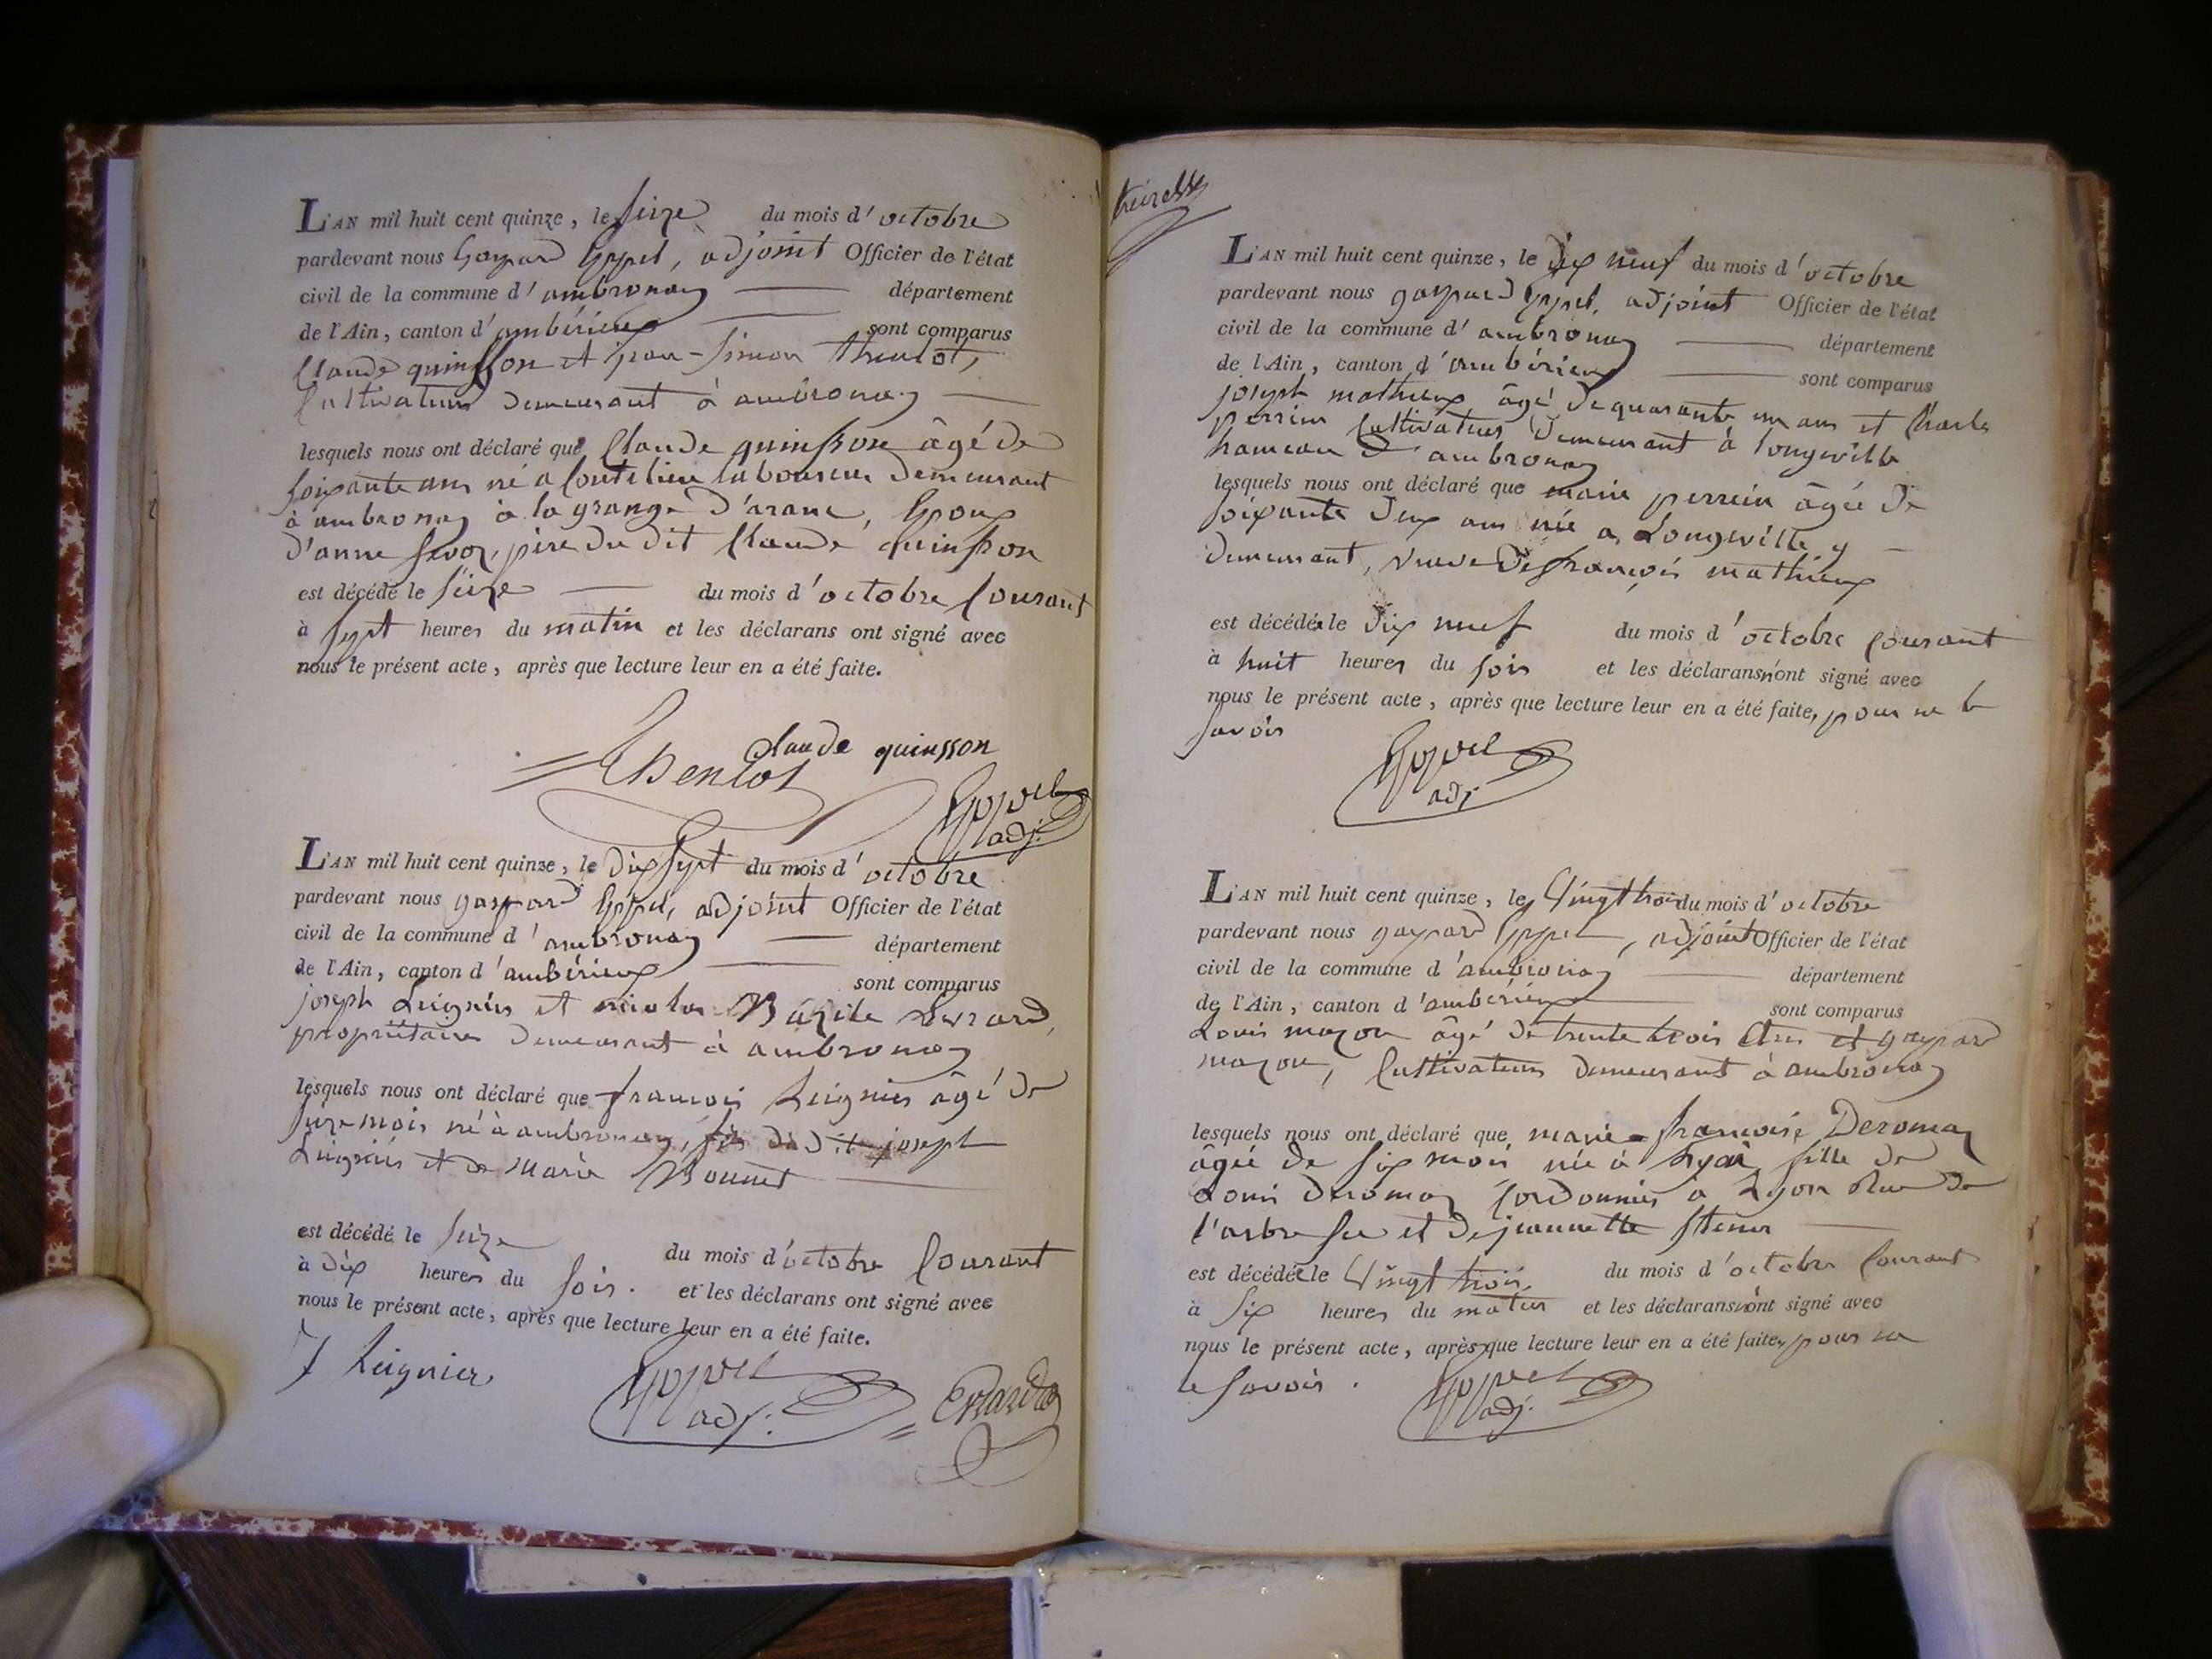 L'AN mil huit cent quinze, le seize du mois d'octobre
pardevant nous Gaspard Eppel, adjoint Officier de l'état
civil de la commune d'ambronay département
de l'Ain, canton d'ambérieux sont comparus
Claude quinsson et jean-simon
Cultivateurs demeurant à ambronay
lesquels nous ont déclaré que Claude quinsson âgé de
soixante ans né a laboureur demeurant
à ambronay à la grange d'aranc, Epoux
d'anne pere du dit Claude quinsson
est décédé le seize du mois d'octobre Courant
à sept heures du matin et les déclarans ont signé avec
nous le présent acte, après que lecture leur en a été faite.
Claude quinsson
Eppel
adj.
L'AN mil huit cent quinze, le dix sept du mois d'octobre
pardevant nous gaspard Eppel, adjoint Officier de l'état
civil de la commune d'ambronay département
de l'Ain, canton d'ambérieux sont comparus
joseph Leignier et nicolas Bazile
propriétaires demeurant à ambronay
lesquels nous ont déclaré que francois Leignier âgé de
seize mois né à ambronay, fils du dit joseph
Leignier et de Marie Bonnet
est décédé le seize du mois d'octobre Courant
à dix heures du soir. et les déclarans ont signé avec
nous le présent acte, après que lecture leur en a été faite.
J Leignier
Eppel
adj.
Evrard
L'AN mil huit cent quinze, le dix neuf du mois d'octobre
pardevant nous gaspard Eppel, adjoint Officier de l'état
civil de la commune d'ambronay département
de l'Ain, canton d'ambérieux sont comparus
joseph mathieux âgé de quarante un ans et Charles
perrin Cultivateurs demeurant à longeville
hameau d'ambronay
lesquels nous ont déclaré que marie perrin âgée de
soixante deux ans née a Longeville y
demeurant, veuve de françois mathieux
est décédée le dix neuf du mois d'octobre Courant
à huit heures du soir et les déclarans n'ont signé avec
nous le présent acte, après que lecture leur en a été faite, pour ne le
savoir
Eppel
adj.
L'AN mil huit cent quinze, le Vingt trois du mois d'octobre
pardevant nous gaspard Eppel, adjoint Officier de l'état
civil de la commune d'ambronay département
de l'Ain, canton d'ambérieux sont comparus
Louis mazon âgé de trente trois Ans et gaspard
mazon, Cultivateurs demeurant à ambronay
lesquels nous ont déclaré que marie francoise Deromaz
âgée de six mois née à Lyon fille de
Louis deromaz Cordonnier à Lyon Rue de
l'arbre sec et de jeannette
est décédée le Vingt trois du mois d'octobre Courant
à Six heures du matin et les déclarans n'ont signé avec
nous le présent acte, après que lecture leur en a été faite, pour ne
le savoir.
Eppel
adj.